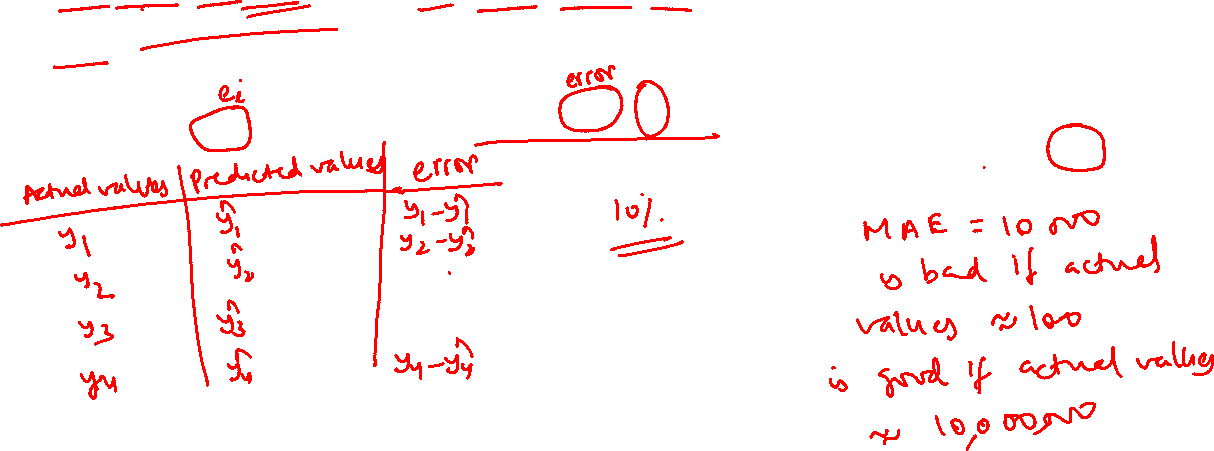 e_i
error
Actual values | Predicted values | error
y_1 ŷ_1 y_1 - ŷ_1
y_2 ŷ_2 y_2 - ŷ_2
y_3 ŷ_3
y_4 ŷ_4 y_4 - ŷ_4
10%
MAE = 10000
is bad if actual
values ≈ 100
is good if actual values
≈ 10,000,000